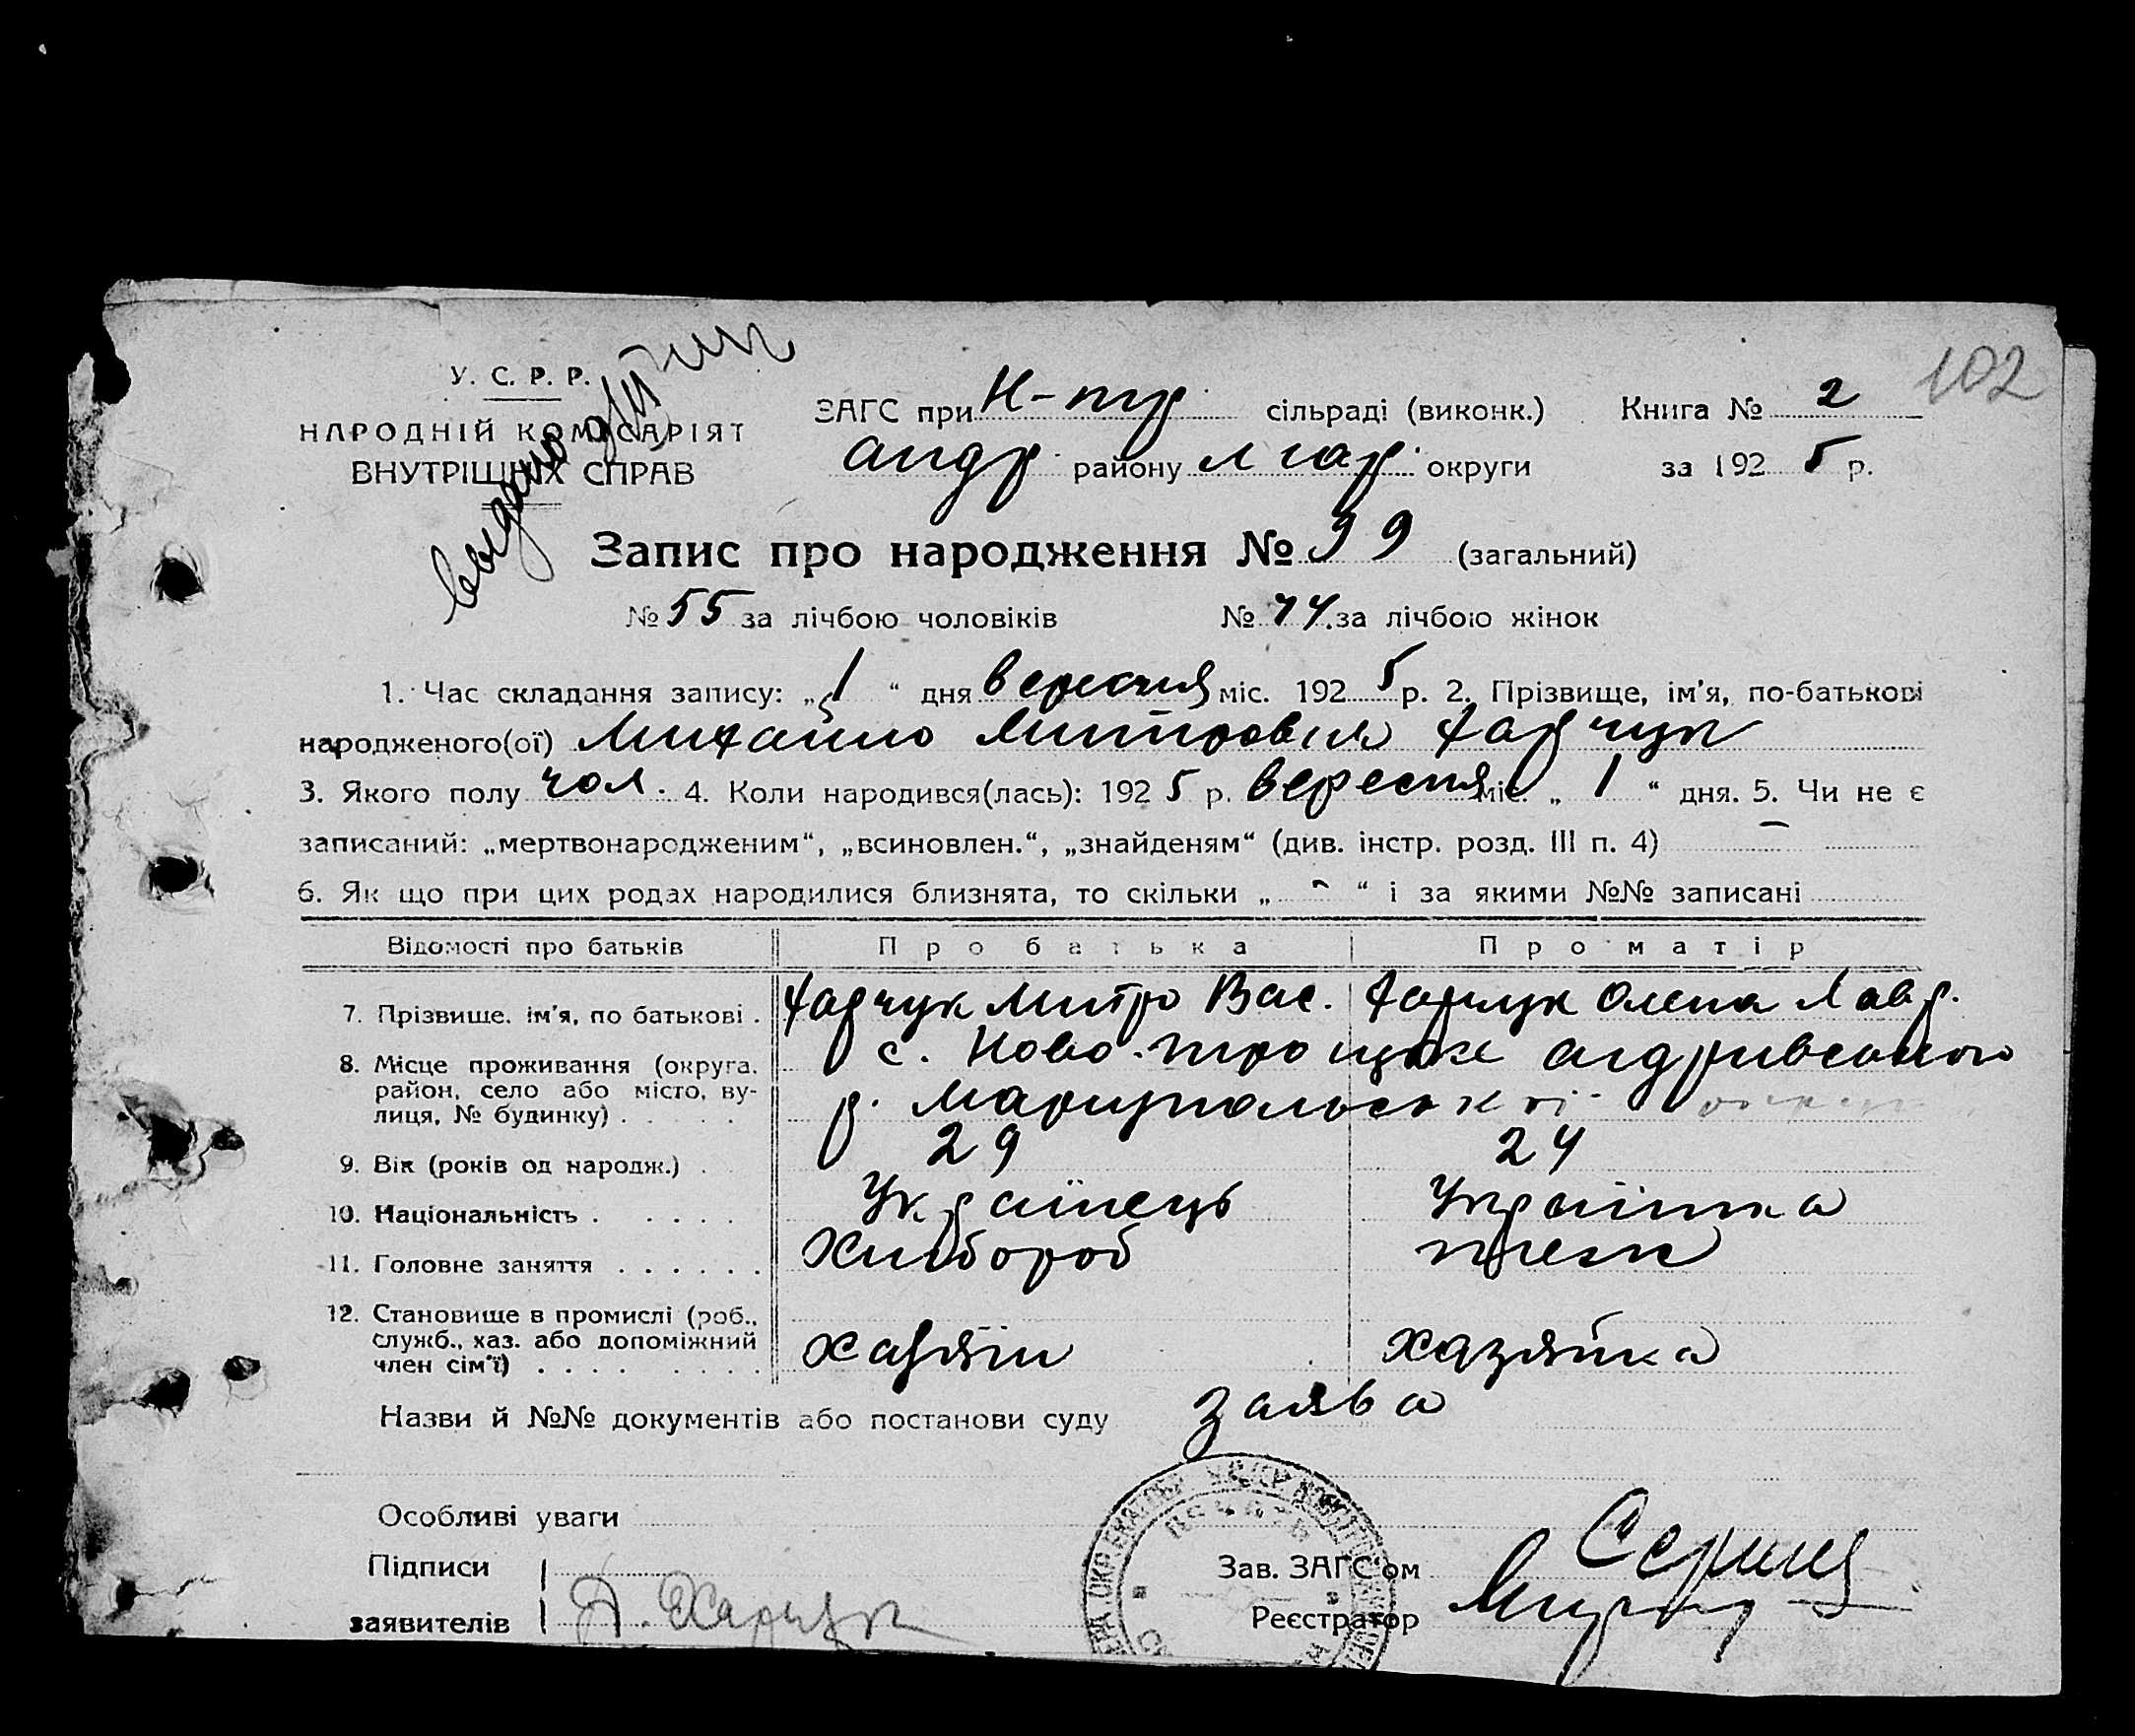 102
У. С. Р. Р.
НАРОДНІЙ КОМІСАРІЯТ
ВНУТРІШНІХ СПРАВ
ЗАГС при Н-тр сільраді (виконк.) Книга № 2
андр району мар округи за 192 5 р.
Запис про народження № 99 (загальний)
№ 55 за лічбою чоловіків № 44 за лічбою жінок
1. Час складання запису: „ 1 “ дня вересня міс. 192 5 р. 2. Прізвище, ім'я, по-батькові
народженого(ої) Михайло Митрович Харчук
3. Якого полу чол. 4. Коли народився(лась): 192 5 р. вересня міс. „ 1 “ дня. 5. Чи не є
записаний: „мертвонародженим“, „всиновлен.“, „знайденям“ (див. інстр. розд. III п. 4) —
6. Як що при цих родах народилися близнята, то скільки „ - “ і за якими №№ записані
Відомості про батьків Про батька Про матір
7. Прізвище, ім'я, по батькові . Харчук Митро Вас. Харчук Олена Лавр.
8. Місце проживання (округа, район, село або місто, вулиця, № будинку) . . . . . с. Ново-троицьке андрівського
р. Маріупольської
9. Вік (років од народж.) . 29 24
10. Національність . . . . . Українець Українка
11. Головне заняття . . . . . . Хлібороб теж
12. Становище в промислі (роб., служб., хаз. або допоміжний член сім'ї) . . . . . . . . хазяїн хазяйка
Назви й №№ документів або постанови суду заява
Особливі уваги
Підписи
заявителів Д. Харчук
Зав. ЗАГС'ом
Реєстратор